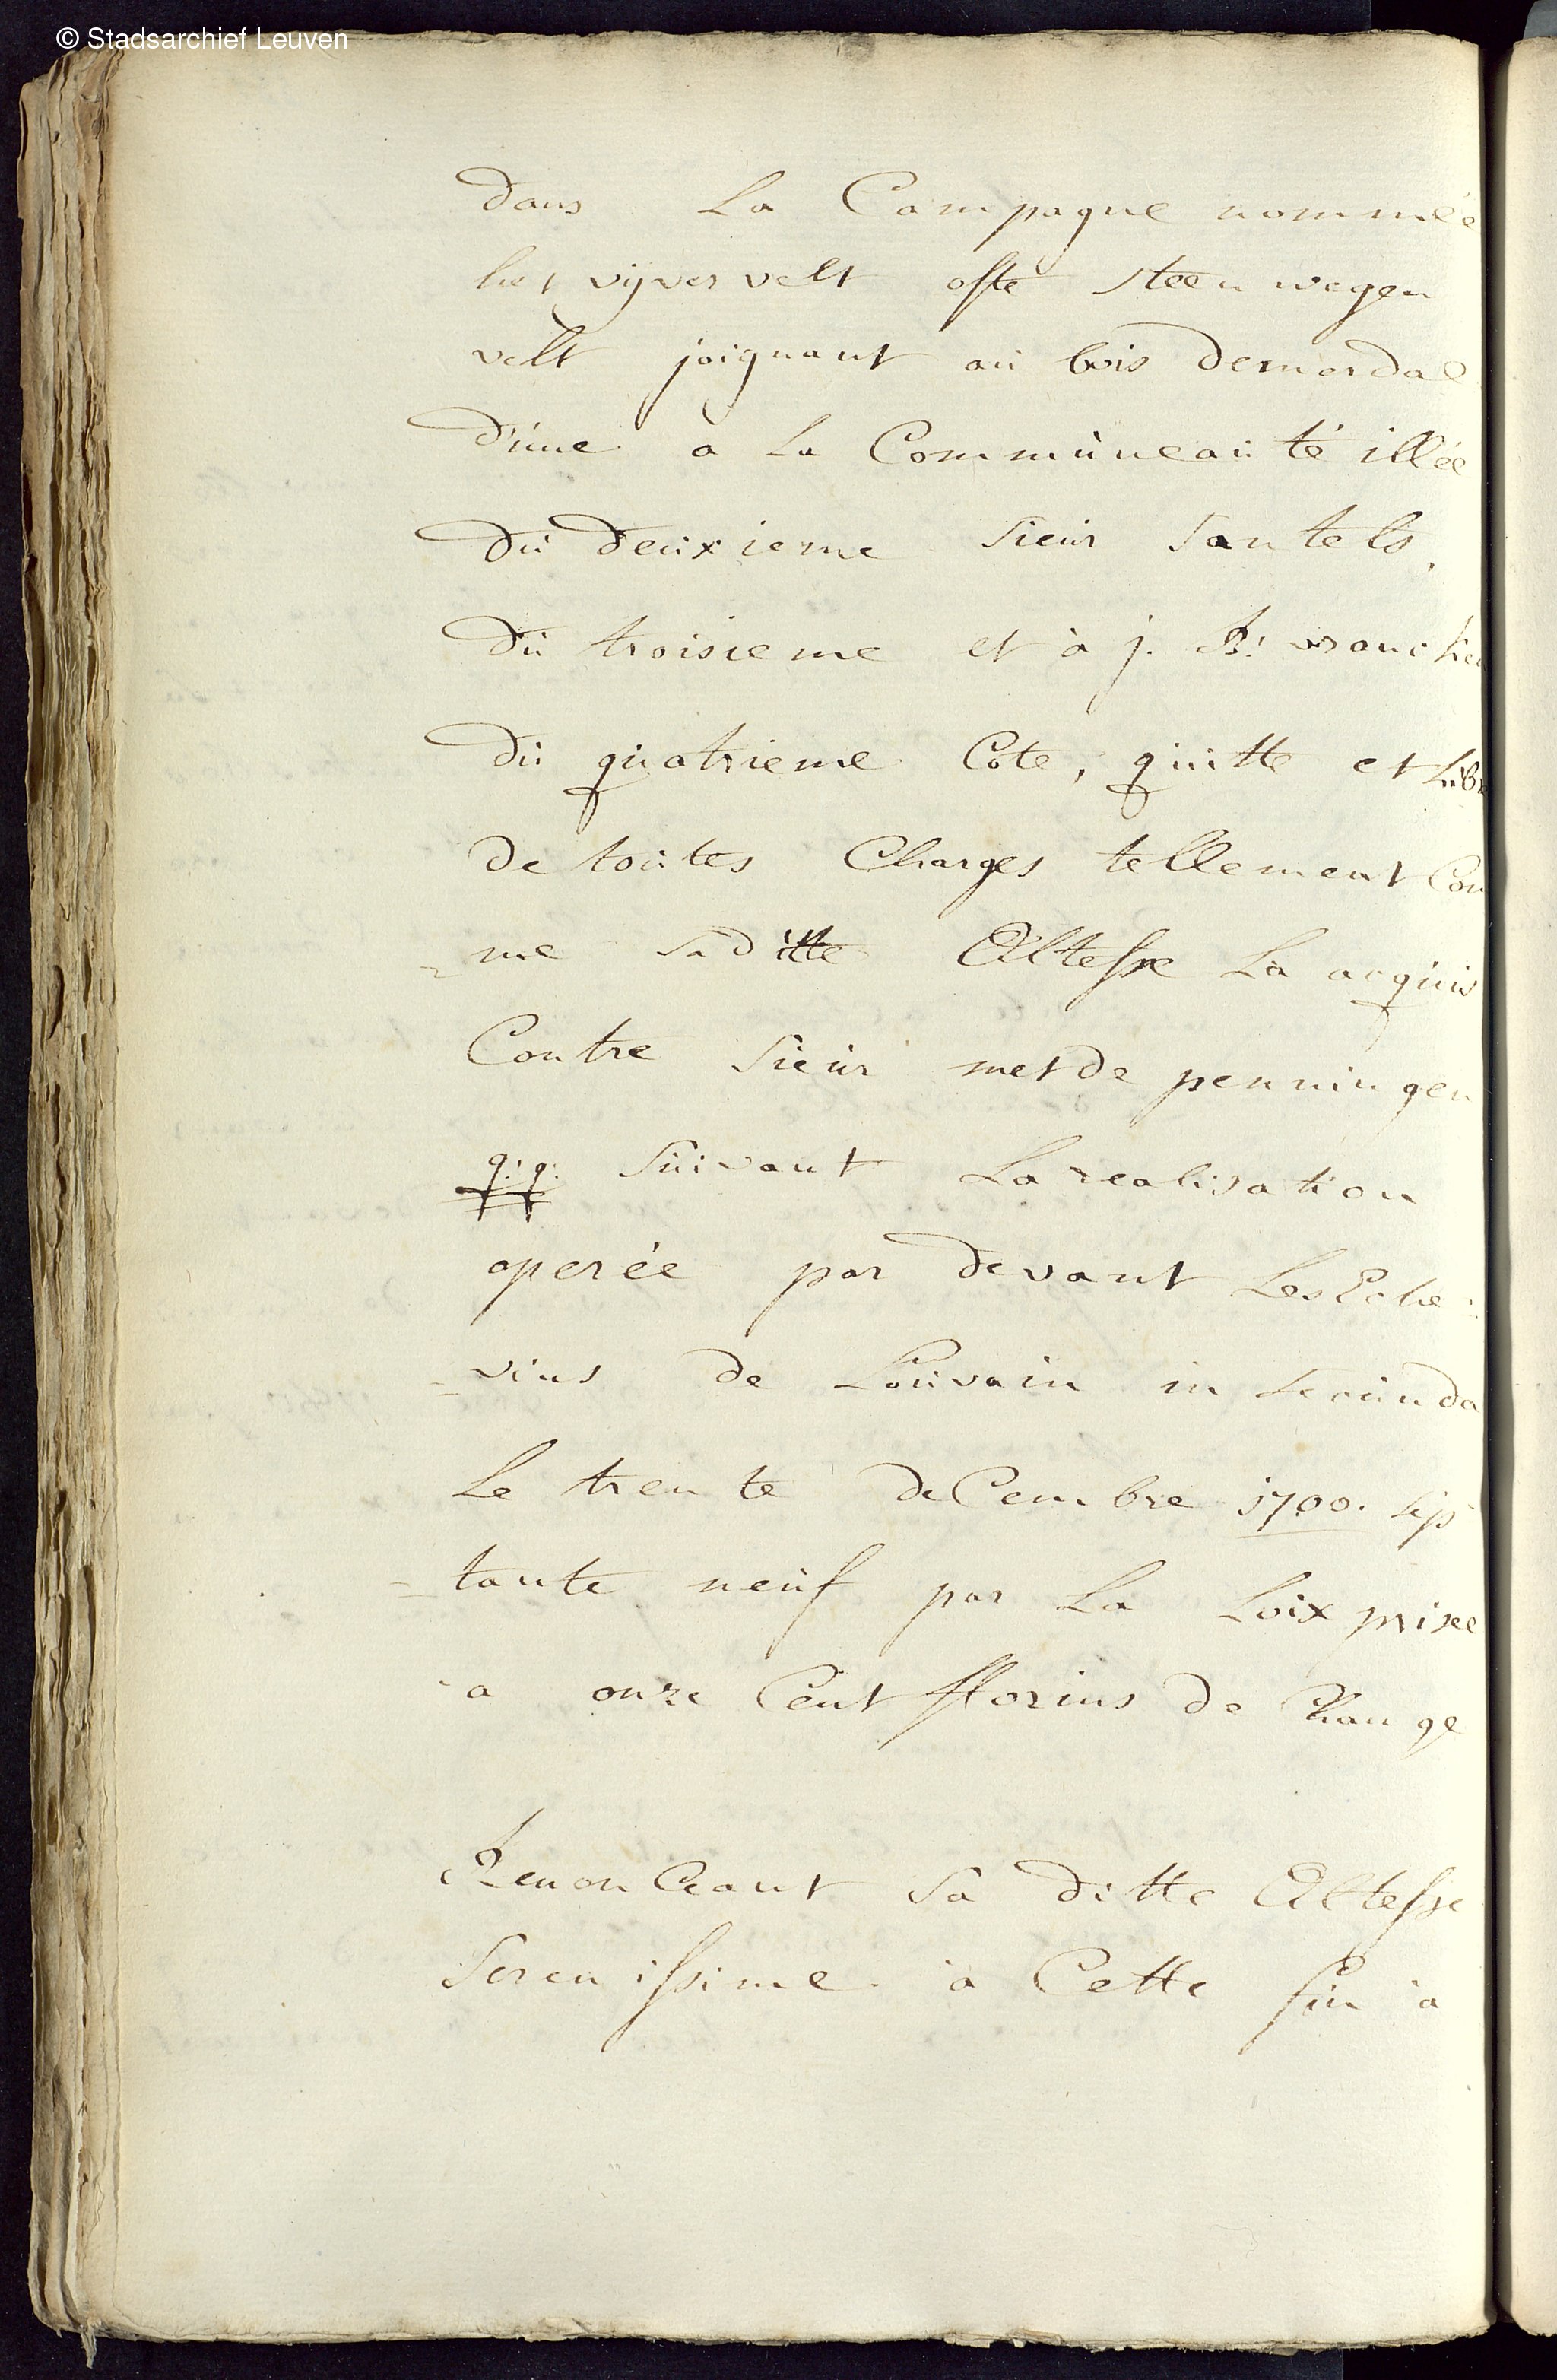 © Stadsarchief Leuven
dans La Campagne nommée
het vijver velt ofte steen wegen
velt joignant aú bois demerdal
d'úne a La Commúneaúté illée
dú deúxieme sieúr santels,
dú troisieme et à j. B: vranck
dú qúatrieme Coté, qúitte et Libre
de toútes Charges tellement Com
=me saditte Altesse La acqúis
Contre sieúr met de penningen
q:q: súivant La realisation
operée par devant Les Eche=
=vins de Loúvain in secúnda
Le trente deCembre 1700. sep
=tante neúf par La Loix prisee
a onze Cent florins de Change
RenonCeant sa ditte Altesse
serenissime à Cette fin à